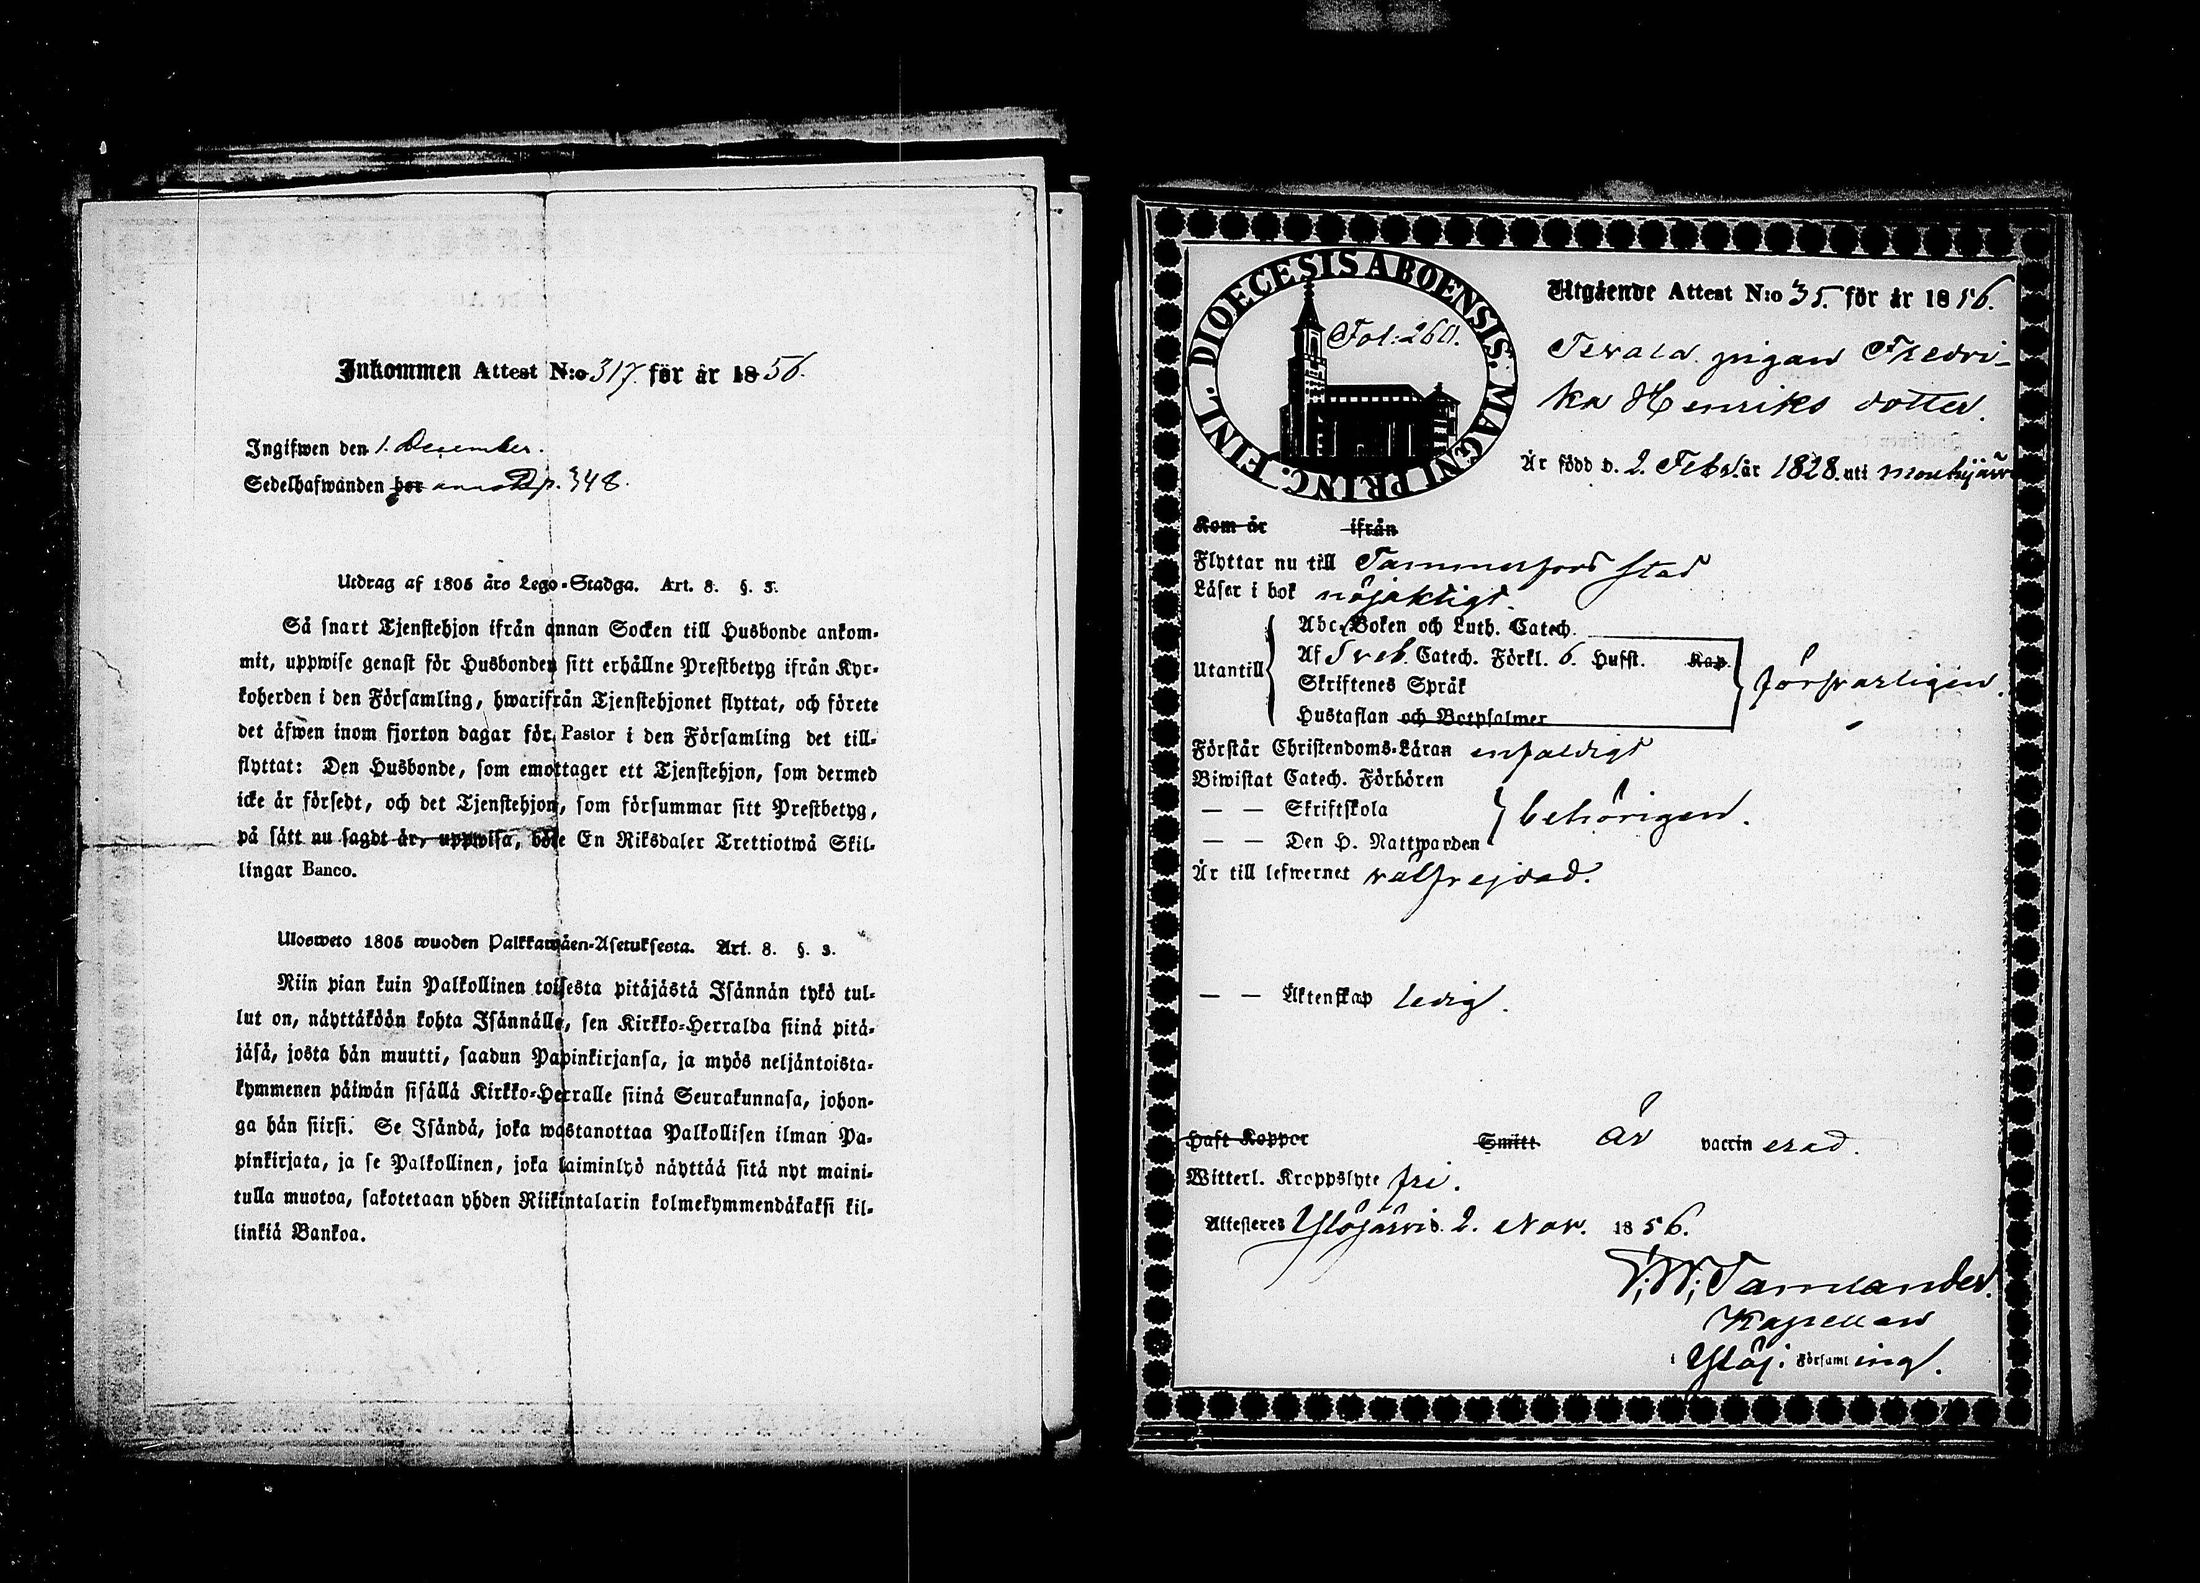 Inkommen Attest N:o 317. för år 1856.
Ingifwen den 1. December.
Sedelhafwanden bor annot. p. 348.
Utdrag af 1805 års Lego-Stadga. Art. 8. §. 3.
Så snart Tjenstehjon ifrån annan Socken till Husbonde ankom-
mit, uppwise genast för Husbonden sitt erhållne Prestbetyg ifrån Kyr-
koherden i den Församling, hwarifrån Tjenstehjonet flyttat, och förete
det äfwen inom fjorton dagar för Pastor i den Församling det till-
flyttat: Den Husbonde, som emottager ett Tjenstehjon, som dermed
icke är försedt, och det Tjenstehjon, som försummar sitt Prestbetyg,
på sätt nu sagdt är, uppwisa, böte En Riksdaler Trettiotwå Skil-
lingar Banco.
Ulosweto 1805 wuoden Palkkawäen-Asetuksesta. Art. 8. §. 3.
Niin pian kuin Palkollinen toisesta pitäjästä Isännän tykö tul-
lut on, näyttäköön kohta Isännälle, sen Kirkko-Herralda siinä pitä-
jäsä, josta hän muutti, saadun Papinkirjansa, ja myös neljäntoista-
kymmenen päiwän sisällä Kirkko-Herralle siinä Seurakunnasa, johon-
ga hän siirsi. Se Isändä, joka wastanottaa Palkollisen ilman Pa-
pinkirjata, ja se Palkollinen, joka laiminlyö näyttää sitä nyt maini-
tulla muotoa, sakotetaan yhden Riikintalarin kolmekymmendäkaksi kil-
linkiä Bankoa.
DIOECESIS ABOENSIS. MAGNI PRINC. FINL.
Fol: 260.
Utgående Attest N:o 35. för år 1856.
pigan Fredri-
ka Henriks dotter.
Är född d. 2. Febr. år 1828. uti Mouhijärvi
Kom år ifrån
Flyttar nu till Tammerfors stad
Läser i bok nöjaktigt.
Utantill
Abc-Boken och Luth. Catech.
Af Sveb. Catech. Förkl. 6. Hufst. Kap.
Skriftenes Språk
Hustaflan och Botpsalmer
försvarligen.
Förstår Christendoms-Läran enfaldigt
Biwistat Catech. Förhören
— — Skriftskola
— — Den H. Nattwarden
behörigen.
Är till lefwernet välfrejdad.
— — Äktenskap ledig.
Haft Koppor Smitt är vaccinerad.
Witterl. Kroppslyte fri.
Attesteres Ylöjärvi d. 2. Nov. 1856.
Kapellan
i Ylöj: Församling.